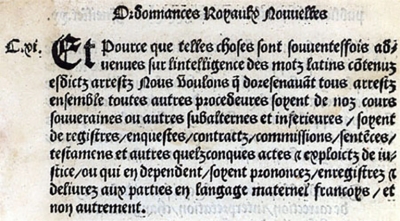 Ordonnances Royaulx Nouvelles
C.xi. Et Pource que telles choses sont souuentesfois ad-
uenues sur lintelligence des motz latins cõtenuz
esdictz arrestz Nous voulons q̃ doresenauãt tous arrestz
ensemble toutes autres procedeures soyent de noz cours
souueraines ou autres subalternes et inferieures / soyent
de registres / enquestes / contractz / commissions / sentẽces /
testamens et autres quelzconques actes & exploictz de iu-
stice / ou qui en dependent / soyent prononcez / enregistrez &
deliurez aux parties en langage maternel francoys / et
non autrement.